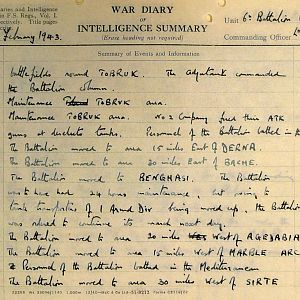 WAR DIARY
of
INTELLIGENCE SUMMARY
(Erase heading not required)
naries and Intelligence
in F.S. Regs., Vol. I.
Title pages
Unit 6th Battalion
Commanding Officer
February 1943.
Summary of Events and Information
battlefields round TOBRUK. The Adjutant commanded
the Battalion column.
Maintenance TOBRUK area.
Maintenance TOBRUK area. No 2 Company fired their ATK
guns at derelict tanks. Personnel of the Battalion bathed in
The Battalion moved to area 15 miles East of DERNA.
The Battalion moved to area 20 miles East of BARCE.
The Battalion moved to BENGHASI. The Battalion
was to have had 24 hours maintenance, but owing to
tank transporters of 1 Armd Div being moved up, the Battalion
was ordered to continue its march next day.
The Battalion moved to area 20 miles West of AGEDABIA
The Battalion moved to area 15 miles West of MARBLE ARC
Personnel of the Battalion bathed in the Mediterranean
The Battalion moved to area 30 miles West of SIRTE